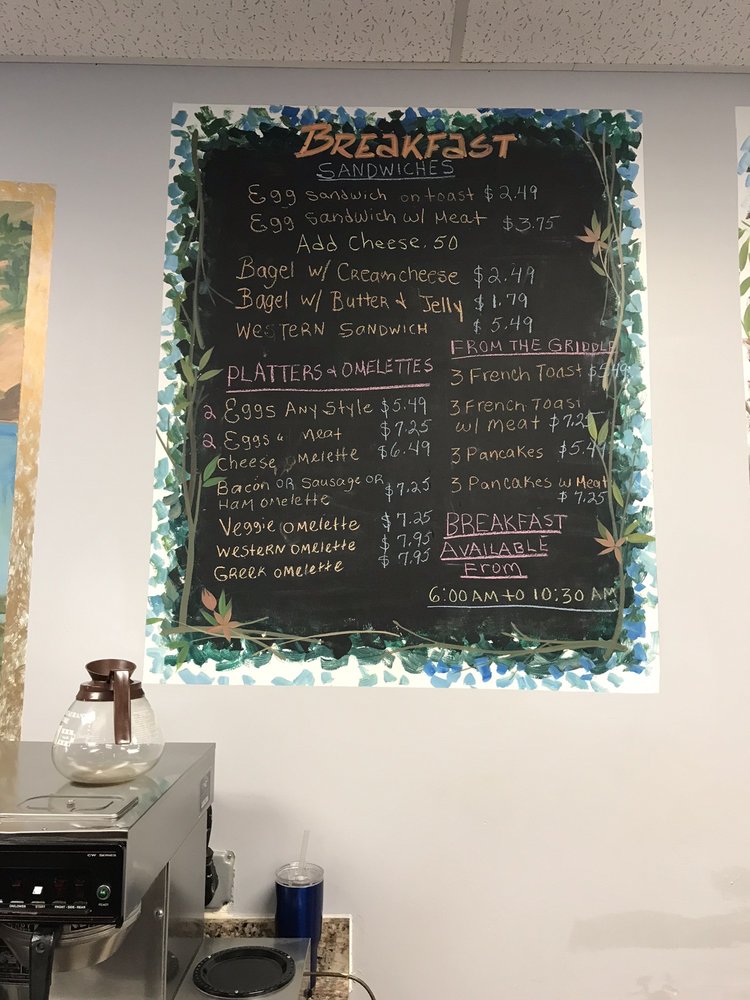 BREAKFAST
SANDWICHES
Egg Sandwich on toast $2.49
Egg Sandwich w/ Meat $3.75
Add Cheese .50
Bagel w/ Creamcheese $2.49
Bagel w/ Butter & Jelly $1.79
WESTERN SANDWICH $5.49
PLATTERS & OMELETTES
2 Eggs Any Style $5.49
2 Eggs & Meat $7.25
Cheese Omelette $6.49
Bacon OR Sausage OR
HAM Omelette $7.25
Veggie Omelette $7.25
WESTERN Omelette $7.95
GREEK Omelette $7.95
FROM THE GRIDDLE
3 French Toast $5.49
3 French Toast
w/ Meat $7.25
3 Pancakes $5.49
3 Pancakes w/ Meat
$7.25
BREAKFAST
AVAILABLE
From
6:00 AM to 10:30 AM
CW SERIES
ON/LOWER START FRONT - SIDE - REAR READY